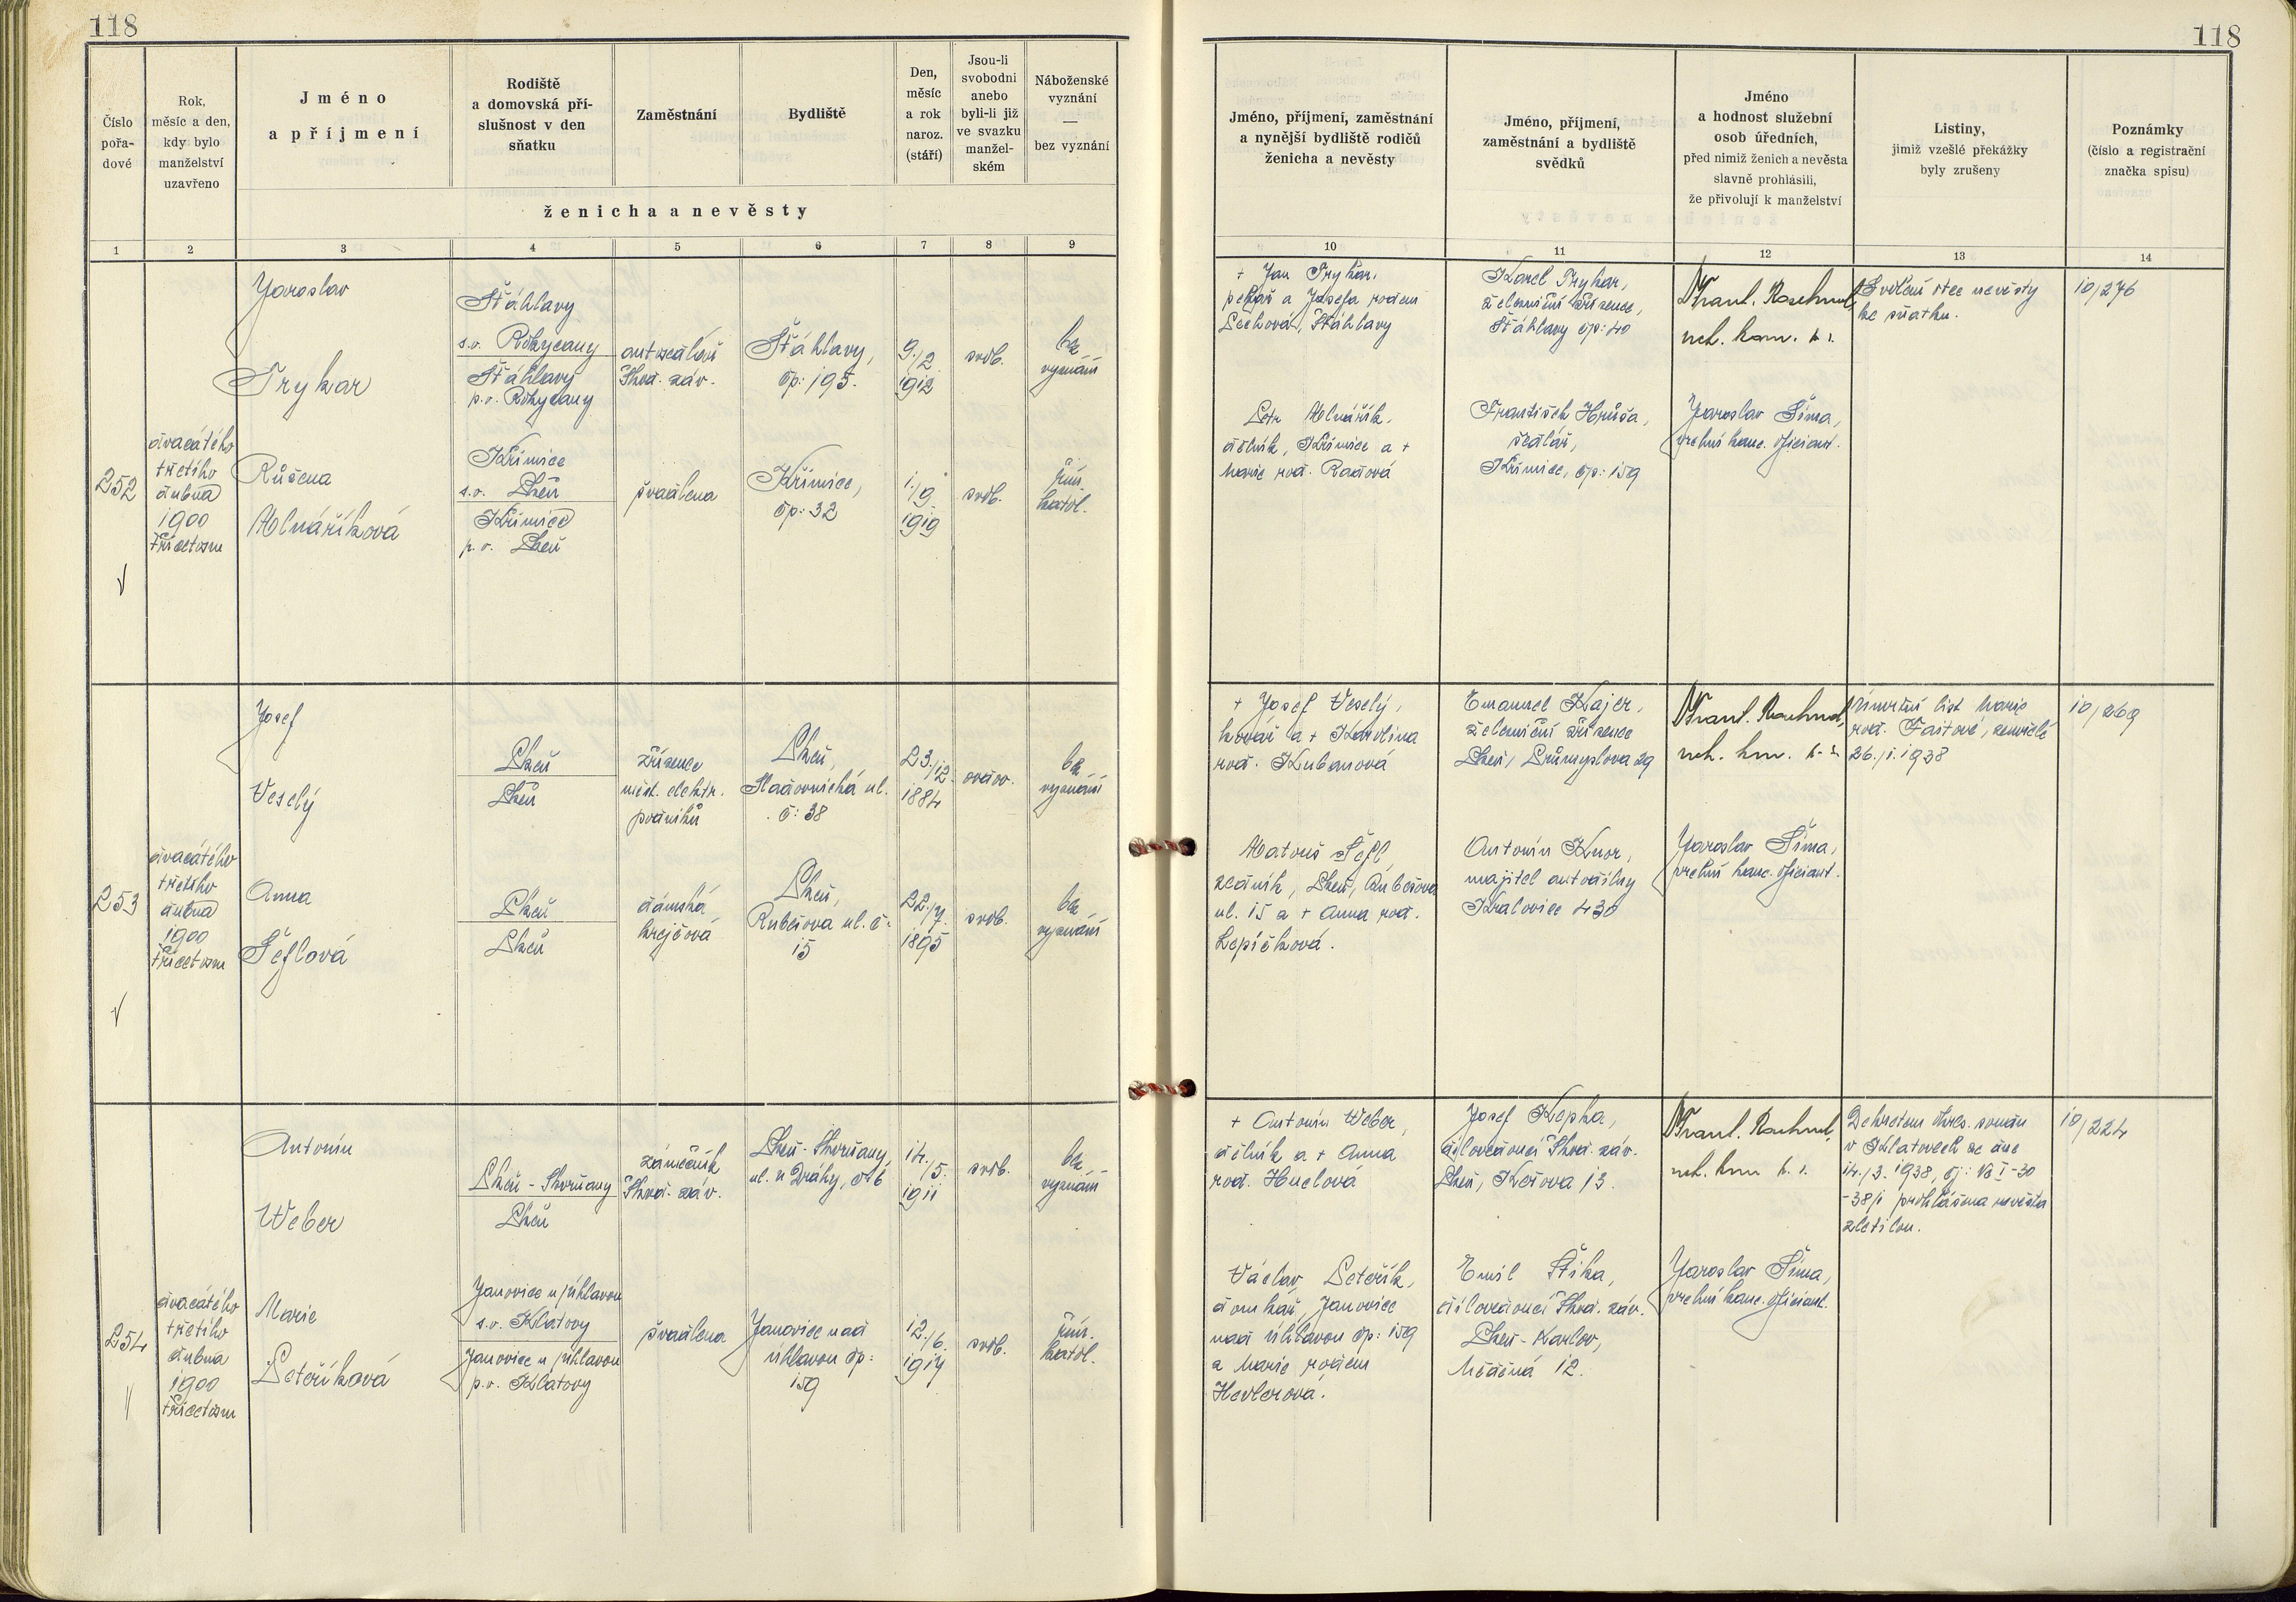 118
118
Číslo
pořa-
dové
Rok,
měsíc a den,
kdy bylo
manželství
uzavřeno
Jméno
a příjmení
Rodiště
a domovská pří-
slušnost v den
sňatku
Zaměstnání
Bydliště
Den,
měsíc
a rok
naroz.
(stáří)
Jsou-li
svobodni
anebo
byli-li již
ve svazku
manžel-
ském
Náboženské
vyznání
—
bez vyznání
ženicha a nevěsty
Jméno, příjmení, zaměstnání
a nynější bydliště rodičů
ženicha a nevěsty
Jméno, příjmení,
zaměstnání a bydliště
svědků
Jméno
a hodnost služební
osob úředních,
před nimiž ženich a nevěsta
slavně prohlásili,
že přivolují k manželství
Listiny,
jimiž vzešlé překážky
byly zrušeny
Poznámky
(číslo a registrační
značka spisu)
1 2 3 4 5 6 7 8 9 10 11 12 13 14
252
dvacátého
třetího
dubna
1900
třicetosm
Jaroslav
Trykar
Šťáhlavy
s.o. Rokycany
Šťáhlavy
p.o. Rokycany
Škod. záv.
Šťáhlavy,
čp: 195.
9./2.
1912
svob.
bez
vyznání
Růžena
Mlnáříková
Křimice
s.o. Plzeň
Křimice
p.o. Plzeň
švadlena
Křimice,
čp: 32
1./9.
1919
svob.
řím.
katol.
+ Jan Trykar,
pekař a Josefa rodem
Šťáhlavy
Petr Mlnářík,
dělník, Křimice a +
Marie rod. Radová
Karel Trykar,
železniční zřízenec,
Šťáhlavy čp: 40
František Hrůša,
Křimice, čp: 159
Frant.
Jaroslav Šíma,
vrchní kanc. oficiant.
Svolení otce nevěsty
ke sňatku.
10/276
253
dvacátého
třetího
dubna
1900
třicetosm
Josef
Veselý
Plzeň
Plzeň
zřízenec
měst. elektr.
podniků
Plzeň,
Sladovnická ul.
č: 38
23./12.
1884
ovdov.
bez
vyznání
Anna
Šeflová
Plzeň
Plzeň
dámská
krejčová
Plzeň,
Rubešova ul. č:
15
22./7.
1895
svob.
bez
vyznání
+ Josef Veselý,
kovář a + Karolina
rod. Kubanová
Matouš Šefl,
zedník, Plzeň, Rubešova
ul. 15 a + Anna rod.
Lepičková.
Emanuel Kajer,
železniční zřízenec
Plzeň, Průmyslová 29
Antonín Knor,
majitel autodílny
Kralovice 430
Frant.
Jaroslav Šíma,
vrchní kanc. oficiant.
Úmrtní list Marie
rod. Faitové, zemřelé
26./1. 1938
10/269
254
dvacátého
třetího
dubna
1900
třicetosm
Antonín
Weber
Plzeň - Skvrňany
Plzeň
zámečník
Škod. záv.
Plzeň - Skvrňany,
ul. u Dráhy, č: 6
14./5.
1911
svob.
bez
vyznání
Marie
Petříková
Janovice n/Úhlavou
s.o. Klatovy
Janovice n/Úhlavou
p.o. Klatovy
švadlena
Janovice nad
Úhlavou čp:
159
12./6.
1917
svob.
řím.
katol.
+ Antonín Weber,
dělník a + Anna
rod. Huclová
Václav Petřík,
domkář, Janovice
nad Úhlavou čp: 159
a Marie rodem
Hevlerová.
Josef Kepka,
dílovedoucí Škod. záv.
Plzeň, 13.
Emil Šika,
dílovedoucí Škod. záv.
Plzeň - Karlov,
Měděná 12.
Frant.
Jaroslav Šíma,
vrchní kanc. oficiant.
Dekretem okres. soudu
v Klatovech ze dne
14./3. 1938, čj:
-38/1 prohlášena nevěsta
zletilou.
10/224